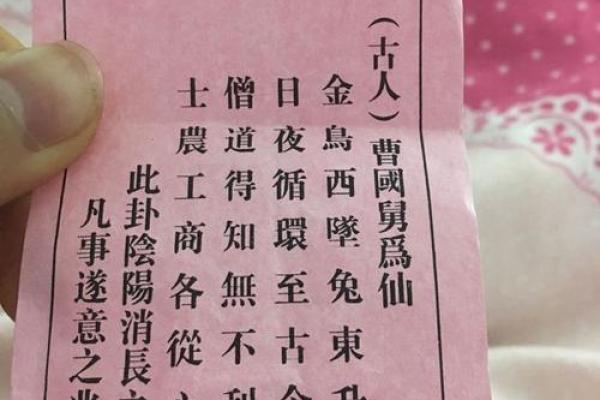 (古人)曹國舅爲仙
金鳥西墜兔東升
日夜循環至古今
僧道得知無不利
士農工商各從
此卦陰陽消長之
凡事遂意之兆